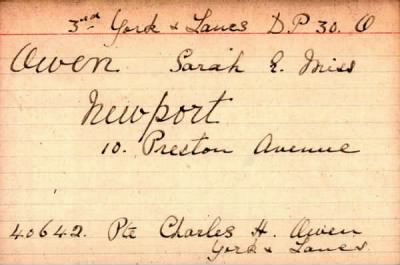 3rd York & Lancs D P 30. O
Owen Sarah E. Miss
Newport
10. Preston Avenue
40642. Pte Charles H. Owen
York & Lancs.